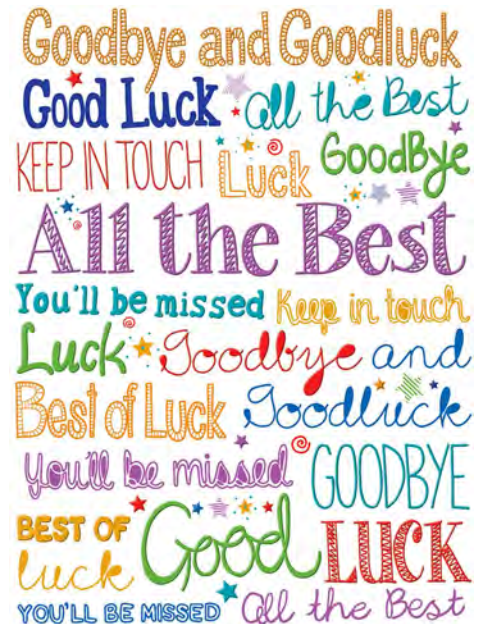 Goodbye and Goodluck
Good Luck all the Best
KEEP IN TOUCH Luck GoodBye
All the Best
You'll be missed Keep in touch
Luck Goodbye and
Best of Luck Goodluck
You'll be missed GOODBYE
BEST OF
luck Good LUCK
YOU'LL BE MISSED All the Best